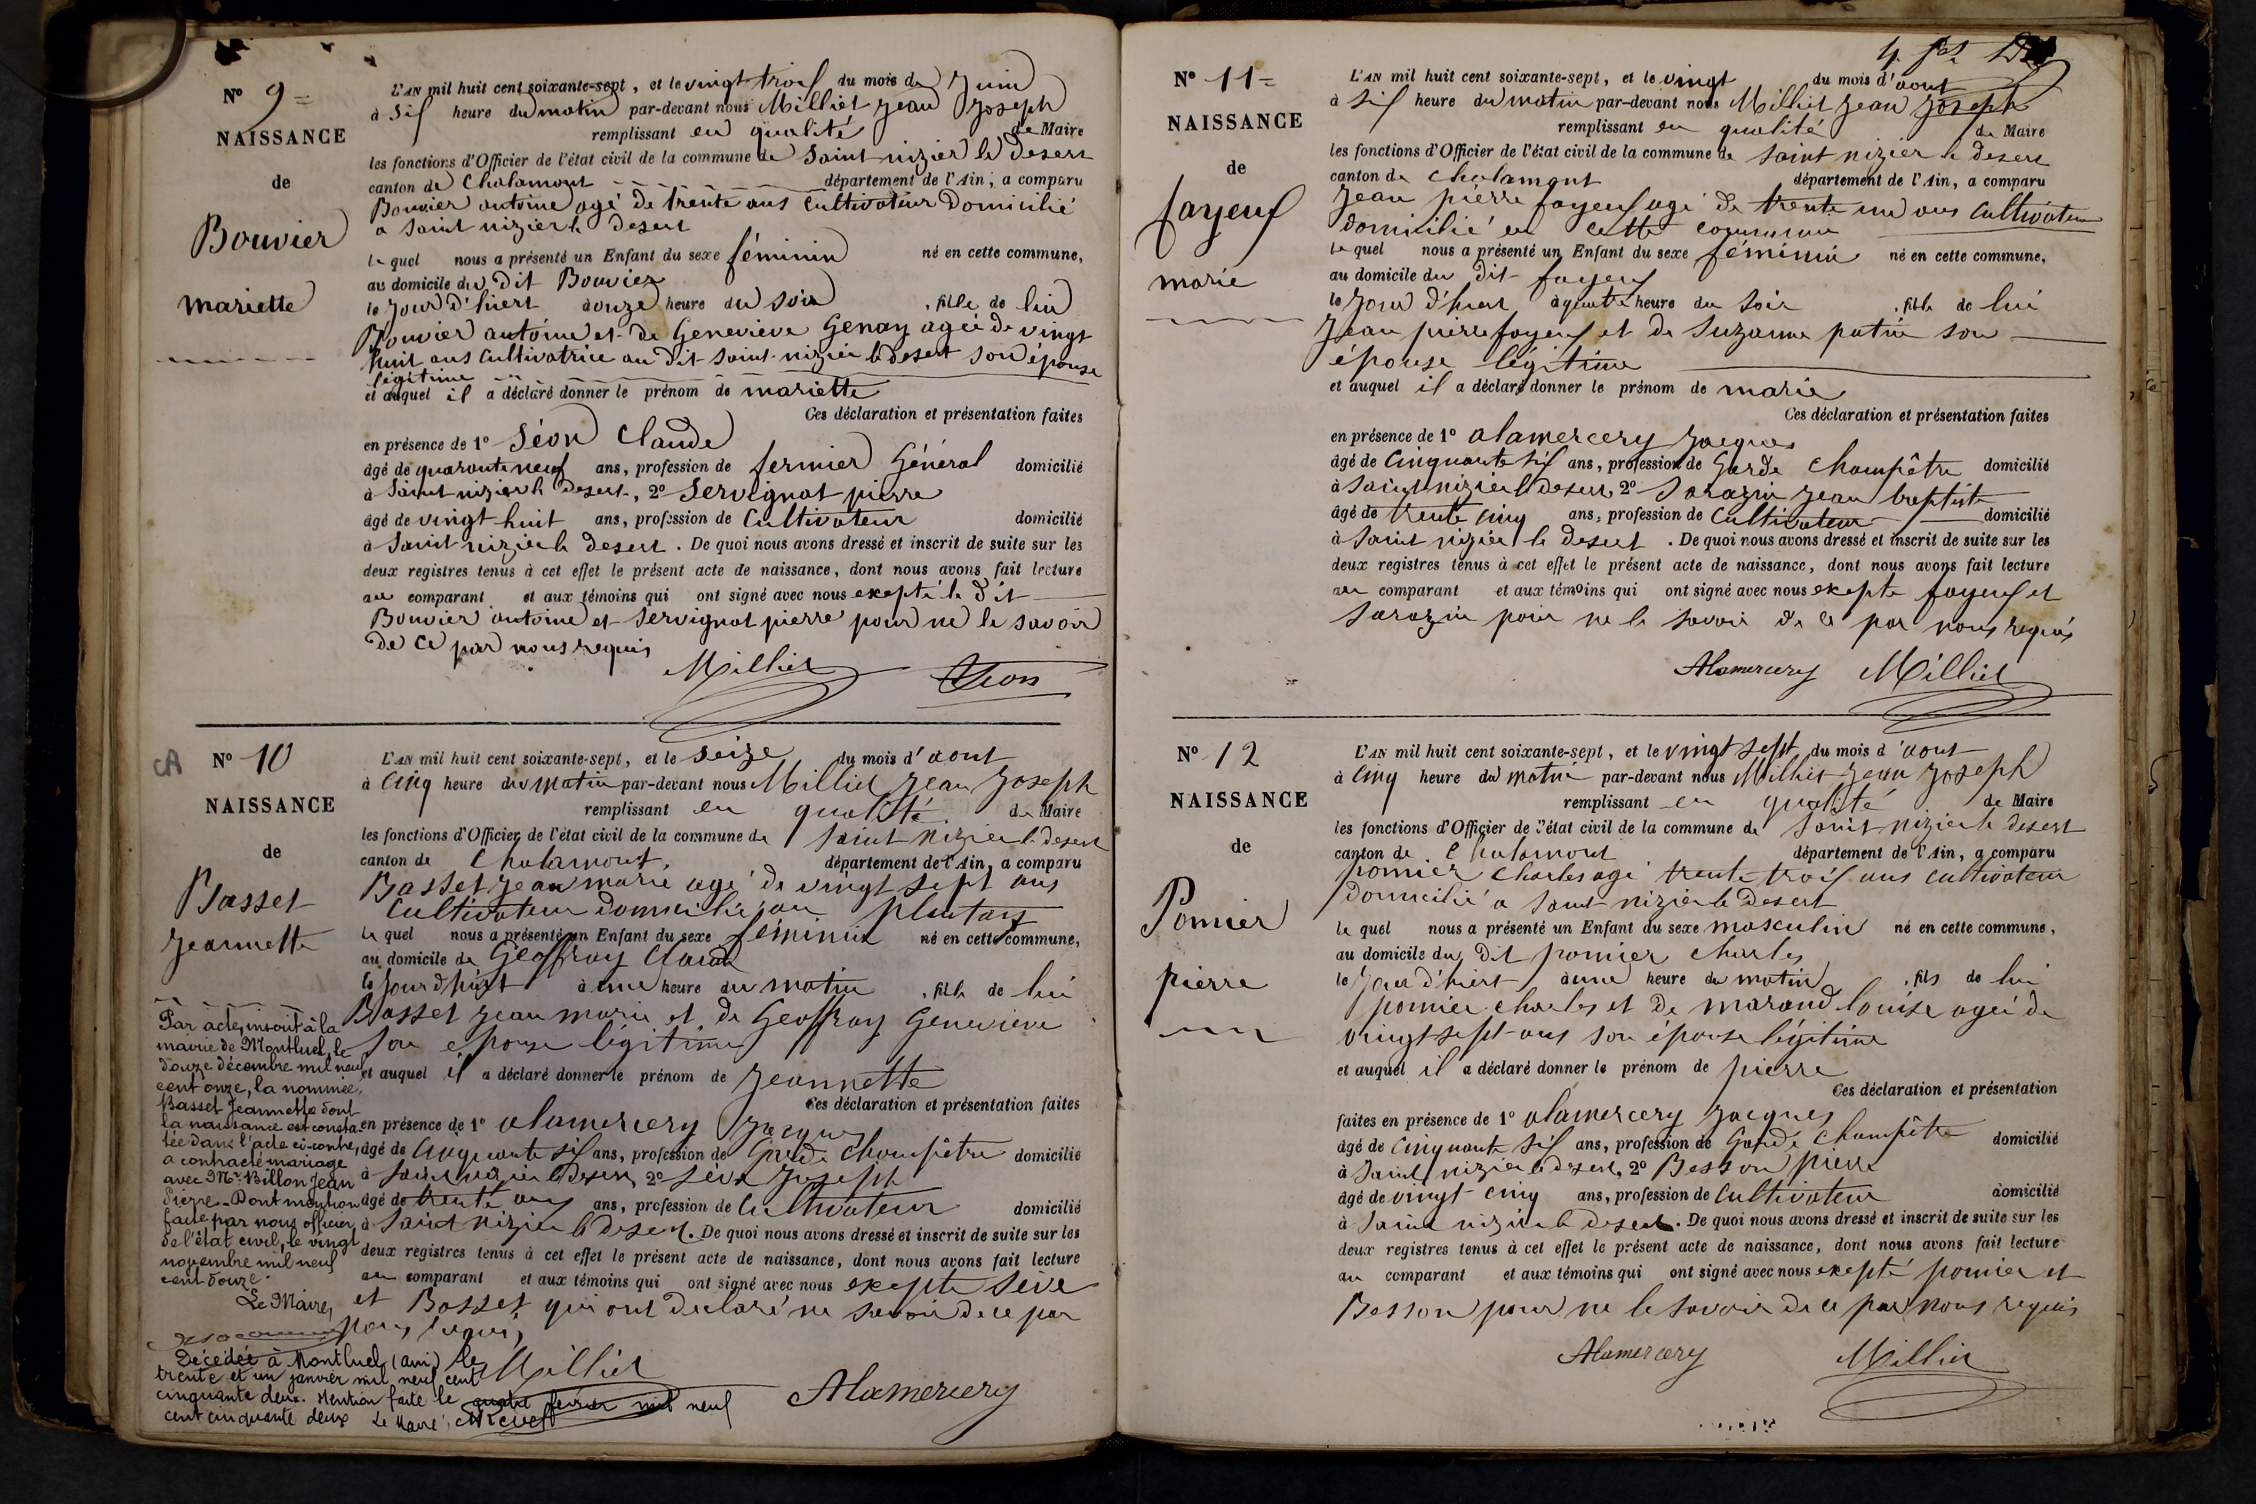 N° 9=
NAISSANCE
de
Bouvier
mariette
L'AN mil huit cent soixante-sept, et le vingt trois du mois de Juin
à six heure du matin par-devant nous Milliet Jean Joseph
remplissant en qualité de Maire
les fonctions d'Officier de l'état civil de la commune de Saint nizier le Desert
canton de Chalamont département de l'Ain, a comparu
Bouvier antoine agé de trente ans cultivateur Domicilié
a Saint nizier le Desert
le quel nous a présenté un Enfant du sexe féminin né en cette commune,
au domicile du Dit Bouvier
le Jour d'hiert à onze heure du soir , fille de lui
Bouvier antoine et de Geneviève Genay agée de vingt
huit ans cultivatrice au Dit Saint nizier le desert son épouse
légitime
et auquel il a déclaré donner le prénom de mariette
Ces déclaration et présentation faites
en présence de 1° Séon Claude
âgé de quarante neuf ans, profession de fermier Général domicilié
à Saint nizier le Desert, 2° Servignat pierre
âgé de vingt huit ans, profession de Cultivateur domicilié
à Saint nizier le Desert. De quoi nous avons dressé et inscrit de suite sur les
deux registres tenus à cet effet le présent acte de naissance, dont nous avons fait lecture
au comparant et aux témoins qui ont signé avec nous exepté le dit
Bouvier antoine et Servignat pierre pour ne le savoir
De ce par nous requis
Milliet Séon
N° 10
NAISSANCE
de
Basset
Jeannette
L'AN mil huit cent soixante-sept, et le seize du mois d'aout
à Cinq heure du matin par-devant nous Milliet Jean Joseph
remplissant en qualité de Maire
les fonctions d'Officier de l'état civil de la commune de Saint nizier le desert
canton de Chalamont, département de l'Ain, a comparu
Basset Jean marie agé de vingt sept ans
Cultivateur domicilié au plantay
le quel nous a présenté un Enfant du sexe féminin né en cette commune,
au domicile de Geoffray Claude
le Jour d'hiert à une heure du matin , fille de lui
Basset Jean marie et de Geoffray Geneviève
son epouse légitime
et auquel il a déclaré donner le prénom de Jeannette
Ces déclaration et présentation faites
en présence de 1° alamercery Jacques
âgé de Cinquante six ans, profession de Garde Champêtre domicilié
à Saint nizier le Desert, 2° Sève Joseph
âgé de trente ans, profession de Cultivateur domicilié
à Saint nizier le desert. De quoi nous avons dressé et inscrit de suite sur les
deux registres tenus à cet effet le présent acte de naissance, dont nous avons fait lecture
au comparant et aux témoins qui ont signé avec nous exepte Sève
et Basset qui ont declaré ne savoir de ce par
nous requis,
Milliet Alamercery
Par acte, inscrit à la
mairie de Montluel, le
douze décembre mil neuf
cent onze, la nommée
Basset Jeannette dont
la naissance est consta-
tée dans l'acte ci-contre,
a contracté mariage
avec Mr. Billon Jean
Pierre. Dont mention
faite par nous officier
de l'état civil, le vingt
novembre mil neuf
cent douze.
Le Maire,
Décédée à Montluel (ain) le
trente et un janvier mil neuf cent
cinquante deux. Mention faite le quatre février mil neuf
cent cinquante deux Le Maire,
N° 11=
NAISSANCE
de
fayeux
marie
L'AN mil huit cent soixante-sept, et le vingt du mois d'aout
à six heure du matin par-devant nous Milliet Jean Joseph
remplissant en qualité de Maire
les fonctions d'Officier de l'état civil de la commune de Saint nizier le desert
canton de Chalamont département de l'Ain, a comparu
Jean pierre fayeux agé de trente un ans cultivateur
domicilié en cette commune
le quel nous a présenté un Enfant du sexe féminin né en cette commune,
au domicile du dit fayeux
le Jour d'hiert à quatre heure du soir , fille de lui
Jean pierre fayeux et de Suzanne putin son
épouse légitime
et auquel il a déclaré donner le prénom de marie
Ces déclaration et présentation faites
en présence de 1° alamercery Jacques
âgé de Cinquante six ans, profession de Garde Champêtre domicilié
à Saint nizier le desert, 2° Sarazin Jean baptiste
âgé de trente cinq ans, profession de Cultivateur domicilié
à Saint nizier le Desert. De quoi nous avons dressé et inscrit de suite sur les
deux registres tenus à cet effet le présent acte de naissance, dont nous avons fait lecture
au comparant et aux témoins qui ont signé avec nous exepte fayeux et
Sarazin pour ne le savoir de ce par nous requis
Alamercery Milliet
N° 12
NAISSANCE
de
Pomier
pierre
L'AN mil huit cent soixante-sept, et le vingt sept du mois d'aout
à Cinq heure du matin par-devant nous Milliet Jean Joseph
remplissant en qualité de Maire
les fonctions d'Officier de l'état civil de la commune de Saint nizier le desert
canton de Chalamont département de l'Ain, a comparu
pomier Charles agé trente trois ans cultivateur
domicilié a Saint nizier le Desert
le quel nous a présenté un Enfant du sexe masculin né en cette commune,
au domicile du Dit pomier charles
le Jour d'hiert à une heure du matin , fils de lui
pomier charles et De marand louise agée de
vingt sept ans son épouse légitime
et auquel il a déclaré donner le prénom de pierre
Ces déclaration et présentation
faites en présence de 1° alamercery Jacques
âgé de Cinquante six ans, profession de Garde Champêtre domicilié
à Saint nizier le desert, 2° Besson pierre
âgé de vingt cinq ans, profession de Cultivateur domicilié
à Saint nizier le desert. De quoi nous avons dressé et inscrit de suite sur les
deux registres tenus à cet effet le présent acte de naissance, dont nous avons fait lecture
au comparant et aux témoins qui ont signé avec nous exepté pomier et
Besson pour ne le savoir de ce par nous requis
Alamercery Milliet